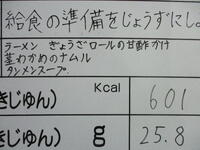 給食の準備をじょうずにし。
ラーメン ぎょうざロールの甘酢かけ
茎わかめのナムル
タンメンスープ
きじゅん) Kcal 601
きじゅん) g 25.8